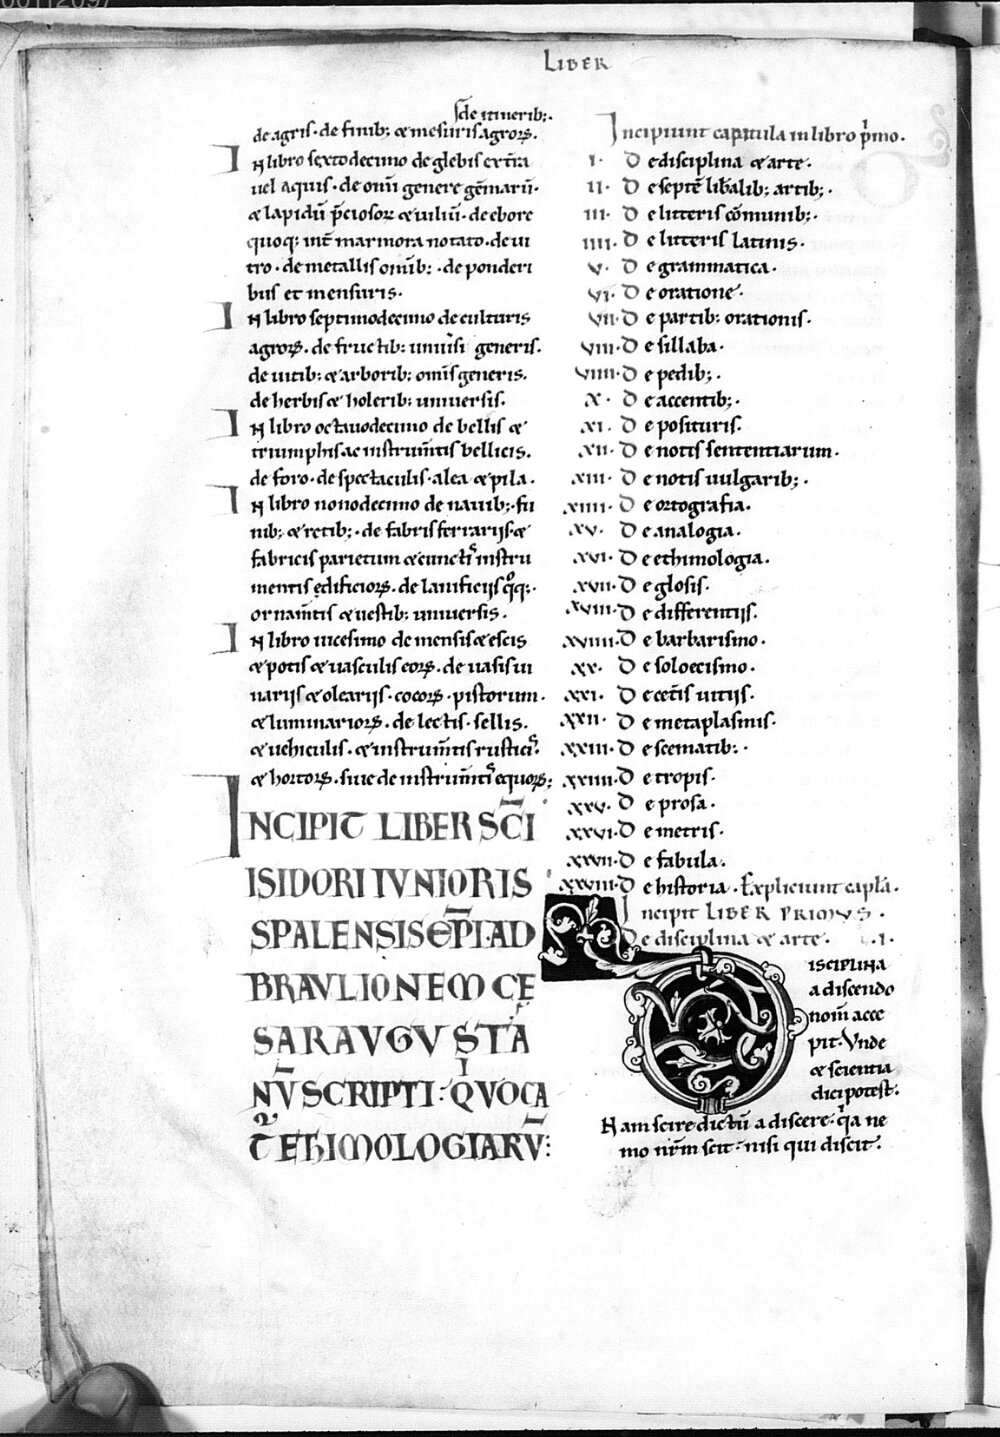 LIBER
de itinerib;.
de agris. de finib; & mesuris agroꝝ.
IN libro sextodecimo de glebis ext̄ra
uel aquis. de om̄i genere gēmarū.
& lapidū p̄ciosoꝝ & uiliū. de ebore
quoq; int̄ marmora notato. de ui
tro. de metallis om̄ib;. de ponderi
bus et mensuris.
IN libro septimodecimo de culturis
agroꝝ. de fructib; uniūsi generis.
de uitib; & arborib; om̄is generis.
de herbis & holerib; uniuersis.
IN libro octauodecimo de bellis &
triumphis ac instrum̄tis bellicis.
de foro. de spectaculis. alea & pila.
IN libro nonodecimo de nauib;. fu
nib; & retib;. de fabris ferrarijs &
fabricis parietum & cunctis instru
mentis ędificioꝝ. de lanificijs qͦq;.
ornam̄tis & uestib; uniuersis.
IN libro uicesimo de mensis & escis
& potis & uasculis eoꝝ. de uasis ui
narijs & olearijs. cocoꝝ. pistorum.
& luminarioꝝ. de lectis. sellis.
& uehiculis. & instrum̄tis rusticis.
& hortoꝝ. siue de instrum̄tis equoꝝ;
INCIPIT LIBER SC̄I
ISIDORI IVNIORIS
SPALENSIS EP̄I. AD
BRAVLIONEM CĘ
SARAVGVSTA
NV̄ SCRIPTI: QVOCA
T EHIMOLOGIARV̄:
Incipiunt capitula in libro p̍mo.
I. De disciplina & arte.
II. De septē lib̄alib; artib;.
III. De litteris cōmunib;.
IIII. De litteris latinis.
V. De grammatica.
VI. De oratione.
VII. De partib; orationis.
VIII. De sillaba.
VIIII. De pedib;.
X. De accentib;.
XI. De posituris.
XII. De notis sententiarum.
XIII. De notis uulgarib;.
XIIII. De ortografia.
XV. De analogia.
XVI. De ethimologia.
XVII. De glosis.
XVIII. De differentijs.
XVIIII. De barbarismo.
XX. De soloecismo.
XXI. De cet̄is uitijs.
XXII. De metaplasmis.
XXIII. De scematib;.
XXIIII. De tropis.
XXV. De prosa.
XXVI. De metris.
XXVII. De fabula.
XXVIII. De historia. Expliciunt capl̄a.
Incipit LIBER PRIMVS.
De disciplina & arte. I.
DISCIPLINA
a discendo
nom̄ acce
pit. Vnde
& scientia
dici potest.
Nam scire dictū a discere. q̍a ne
mo nr̄m scit. nisi qui discit.